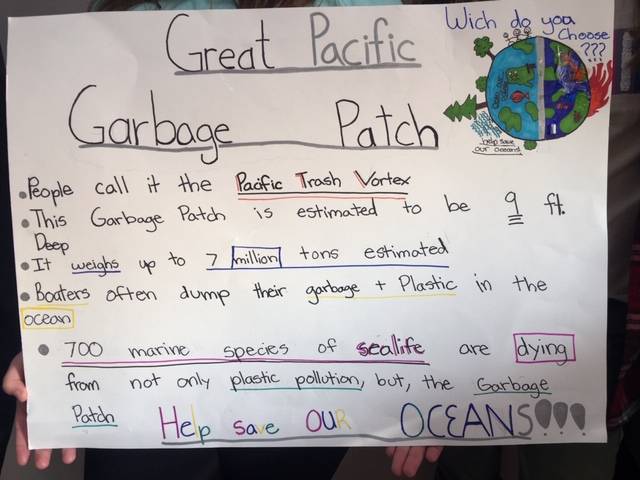 Great Pacific
Garbage Patch
Wich do you
Choose
???
help save
our oceans
•People call it the Pacific Trash Vortex
•This Garbage Patch is estimated to be 9 ft.
Deep
•It weighs up to 7 million tons estimated
•Boaters often dump their garbage + Plastic in the
ocean
• 700 marine species of sealife are dying
from not only plastic pollution, but, the Garbage
Patch
Help save OUR OCEANS!!!